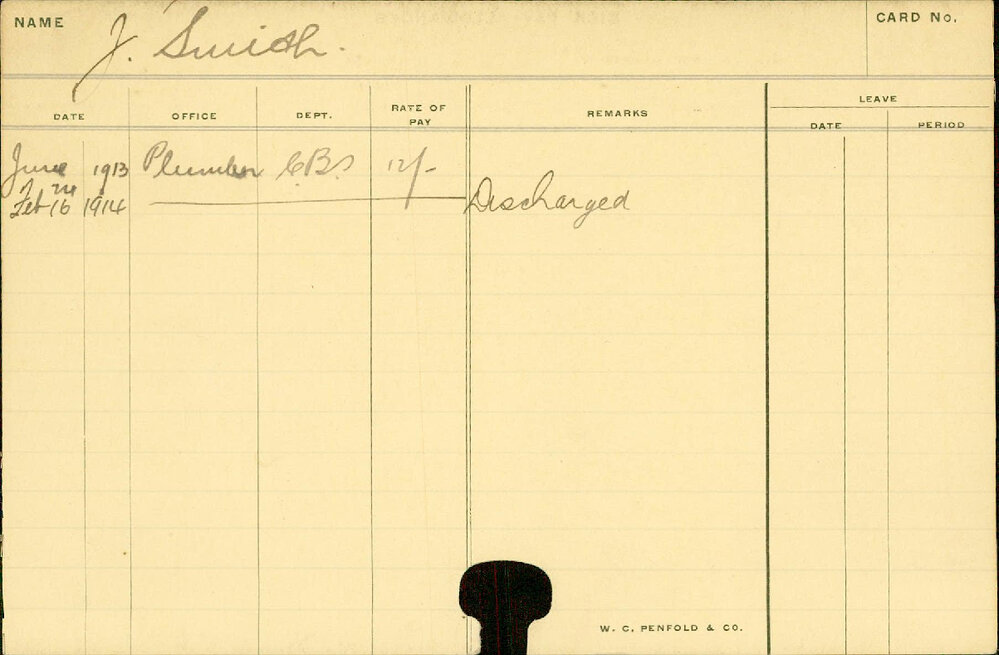 NAME J. Smith. CARD No.
LEAVE
DATE OFFICE DEPT. RATE OF PAY REMARKS DATE PERIOD
June 1913 Plumber 12/-
Feb 16 1914 Discharged
W. C. PENFOLD & CO.